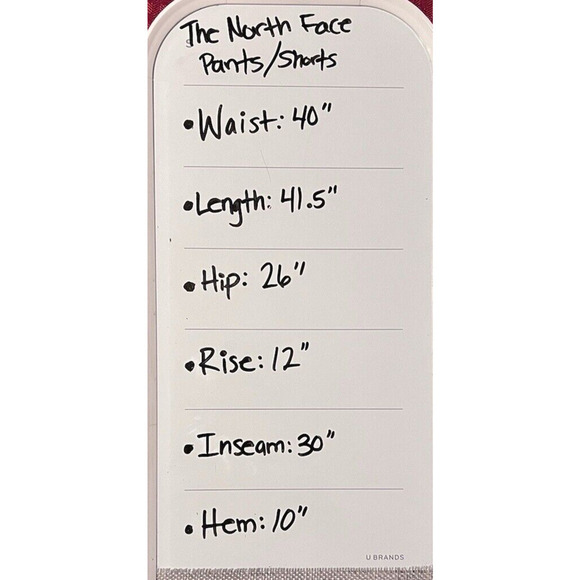 The North Face
Pants/Shorts
•Waist: 40"
•Length: 41.5"
•Hip: 26"
•Rise: 12"
•Inseam: 30"
•Hem: 10"
U BRANDS